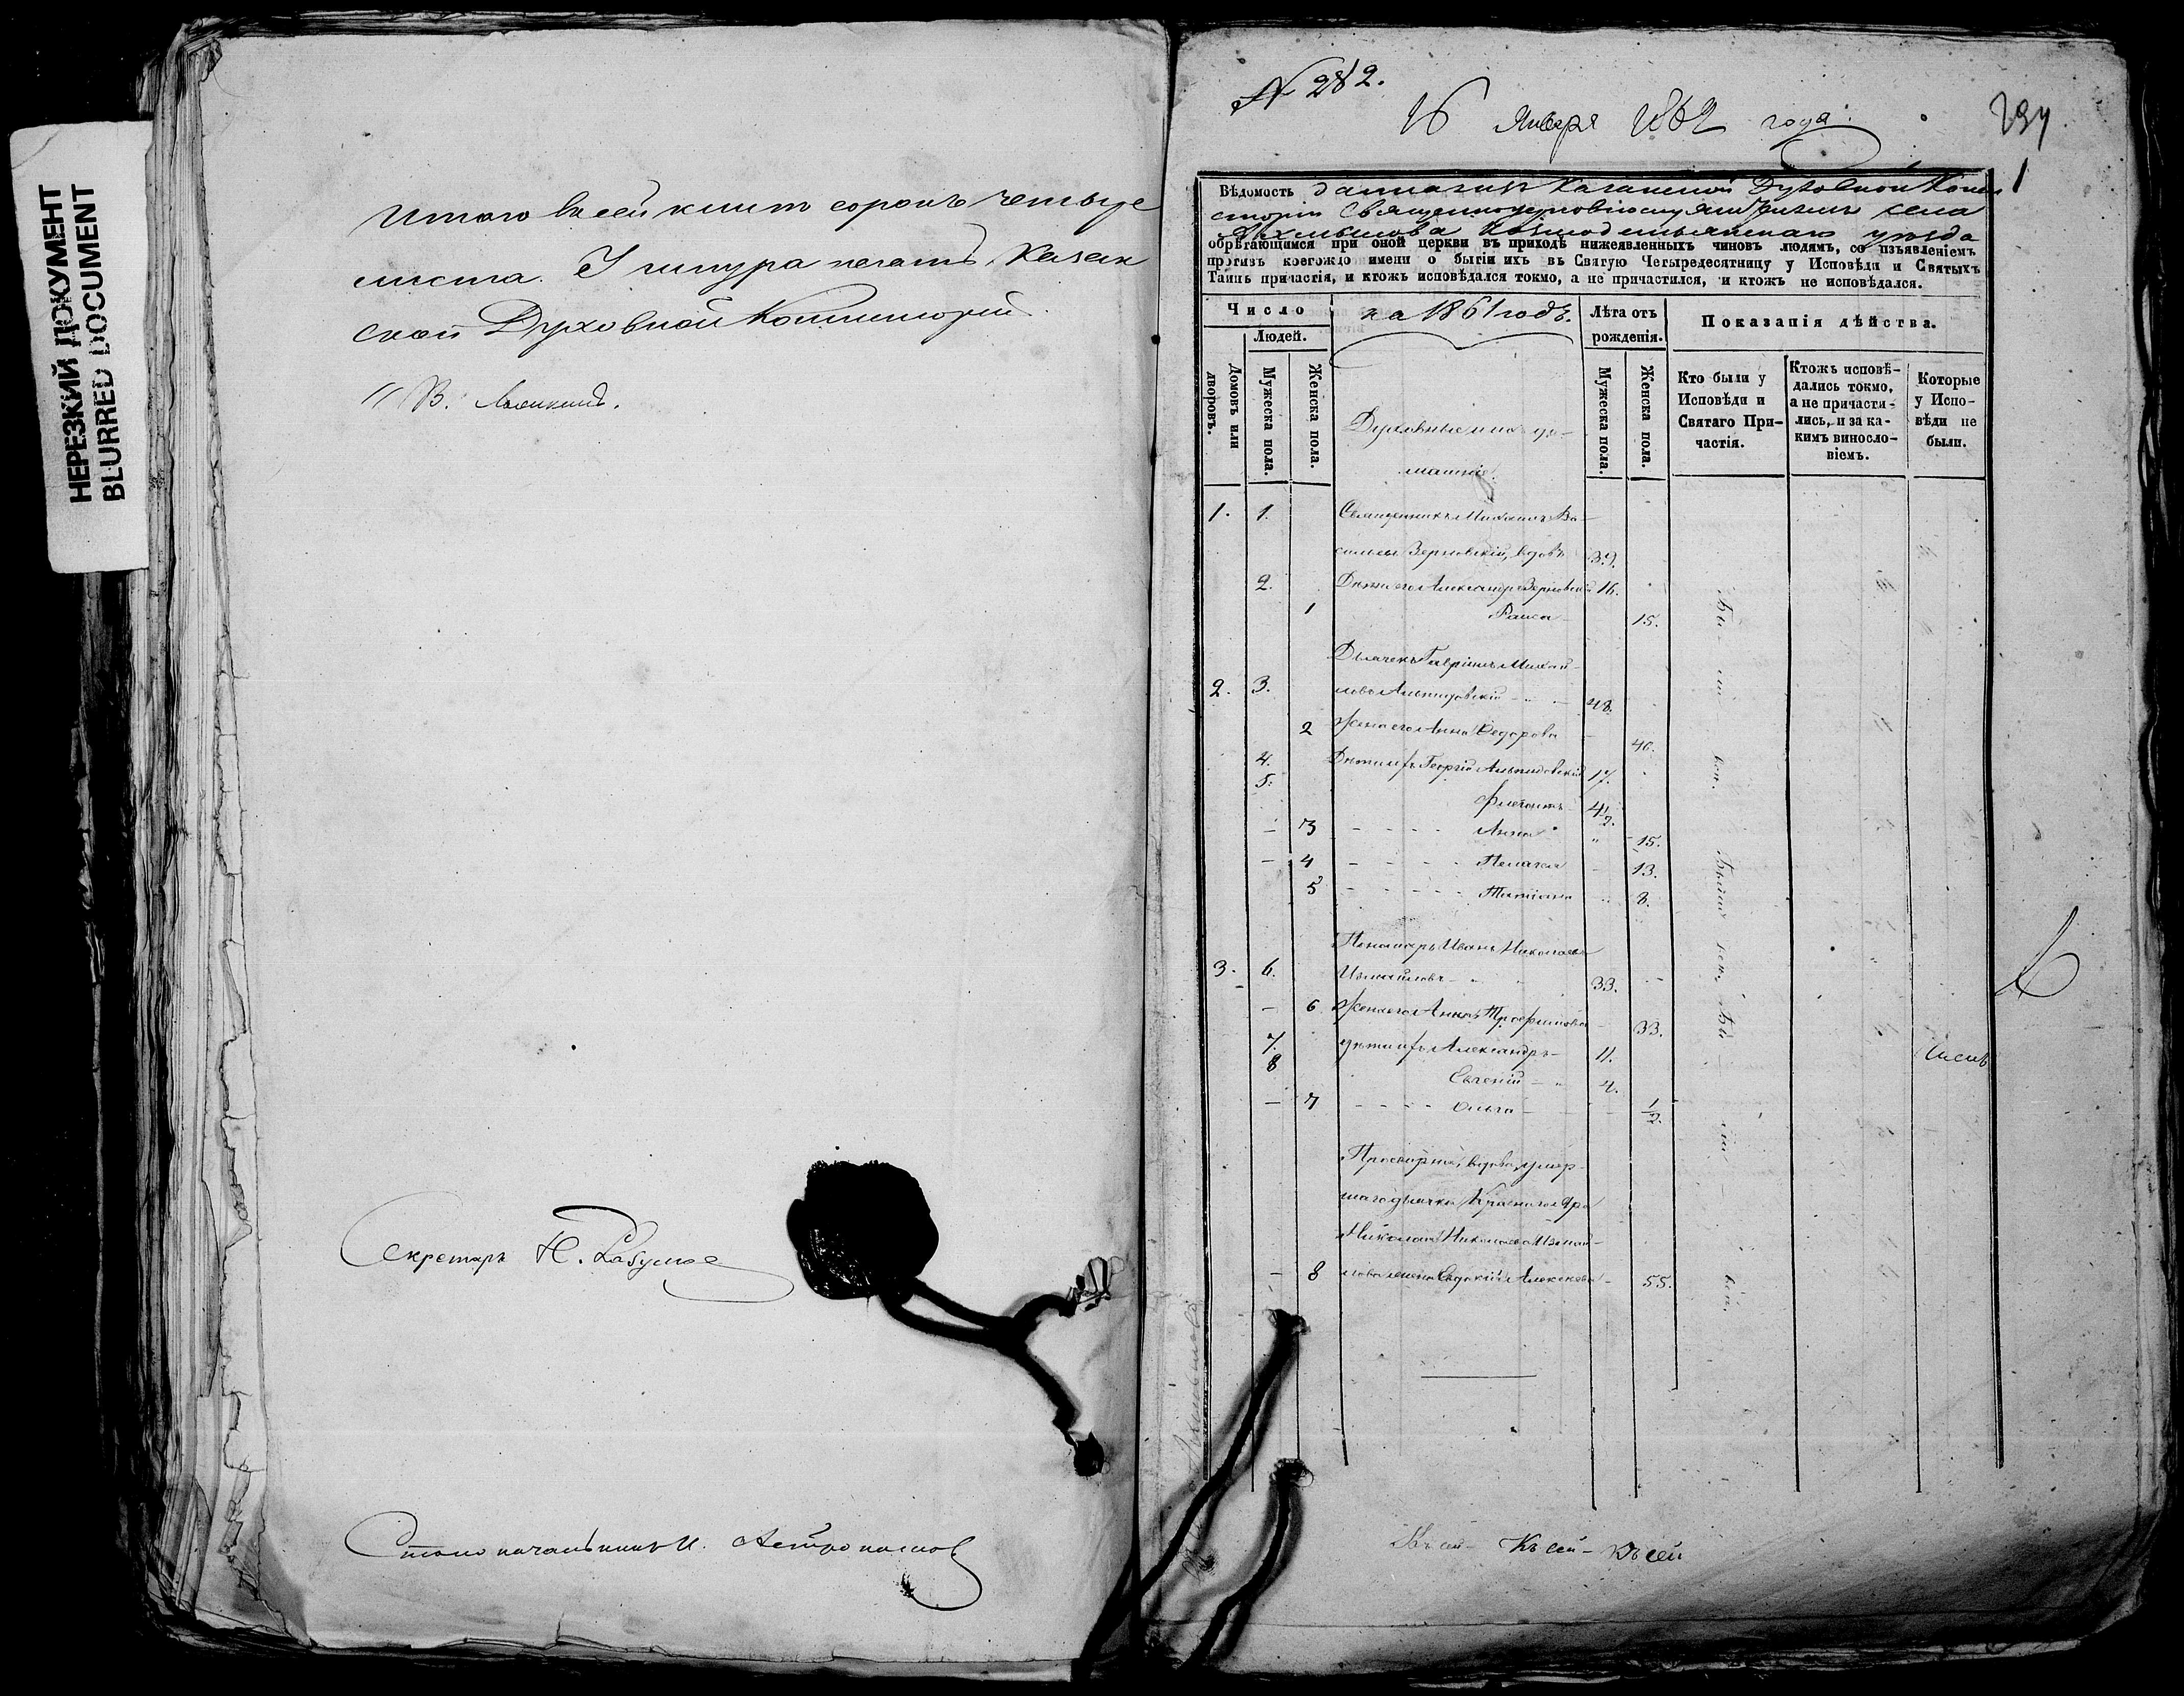 НЕРЕЗКИЙ ДОКУМЕНТ
BLURRED DOCUMENT
Итого в сей книге сорокъ четыре
листа. У шнура печать Казан
ской Духовной Консисторіи.
Секретарь Н.
Столоначальникъ И.
№ 282.
16 Января 1862 года.
1
Вѣдомость данная изъ Казанской Духовной Конси
сторіи Священноцерковнослужителямъ села
Козмодемьянскаго уѣзда
обрѣтающимся при оной церкви въ приходѣ нижеявленныхъ чиновъ людямъ, со изъявленіемъ
противъ коегождо имени о бытіи ихъ въ Святую Четыредесятницу у Исповѣди и Святыхъ
Таинъ причастія, и ктожъ исповѣдался токмо, а не причастился, и ктожъ не исповѣдался.
Число
Людей.
Домовъ или дворовъ.
Мужеска пола.
Женска пола.
на 1861 годъ.
Лѣта отъ рожденія.
Мужеска пола.
Женска пола.
Показанія дѣйства.
Кто были у Исповѣди и Святаго Причастія.
Ктожъ исповѣдались токмо, а не причастились, и за какимъ винословіемъ.
Которые у Исповѣди не были.
Духовные и ихъ до-
машніе.
1. 1. Священникъ Михаилъ Ва-
сильевъ Зерновскій, вдовъ 39.
2. Дѣти его Александръ Зерновскій 16.
1 Раиса 15.
Дьячекъ Гавріилъ Михай-
2. 3. ловъ Альпидовскій 48.
2 Жена его Анна Ѳедорова 40.
4. Дѣти ихъ Георгій Альпидовскій 17.
5. Флегонтъ 4 1/2.
3 Анна 15.
4 Пелагея 13.
5 Татіана 8.
Пономарь Иванъ Николаевъ
3. 6. Измайловъ 33.
6 Жена его Анна Трофимова 33.
7. Дѣти ихъ Александръ 11.
8 Евгеній 4.
7 Ольга 1/2.
Просвирня, вдова умер-
шаго дьячка Краснаго Яра
Николая Николаева Измай-
8 лова жена Евдокія Алексѣева 55.
Къ сей - Къ сей - Къ сей